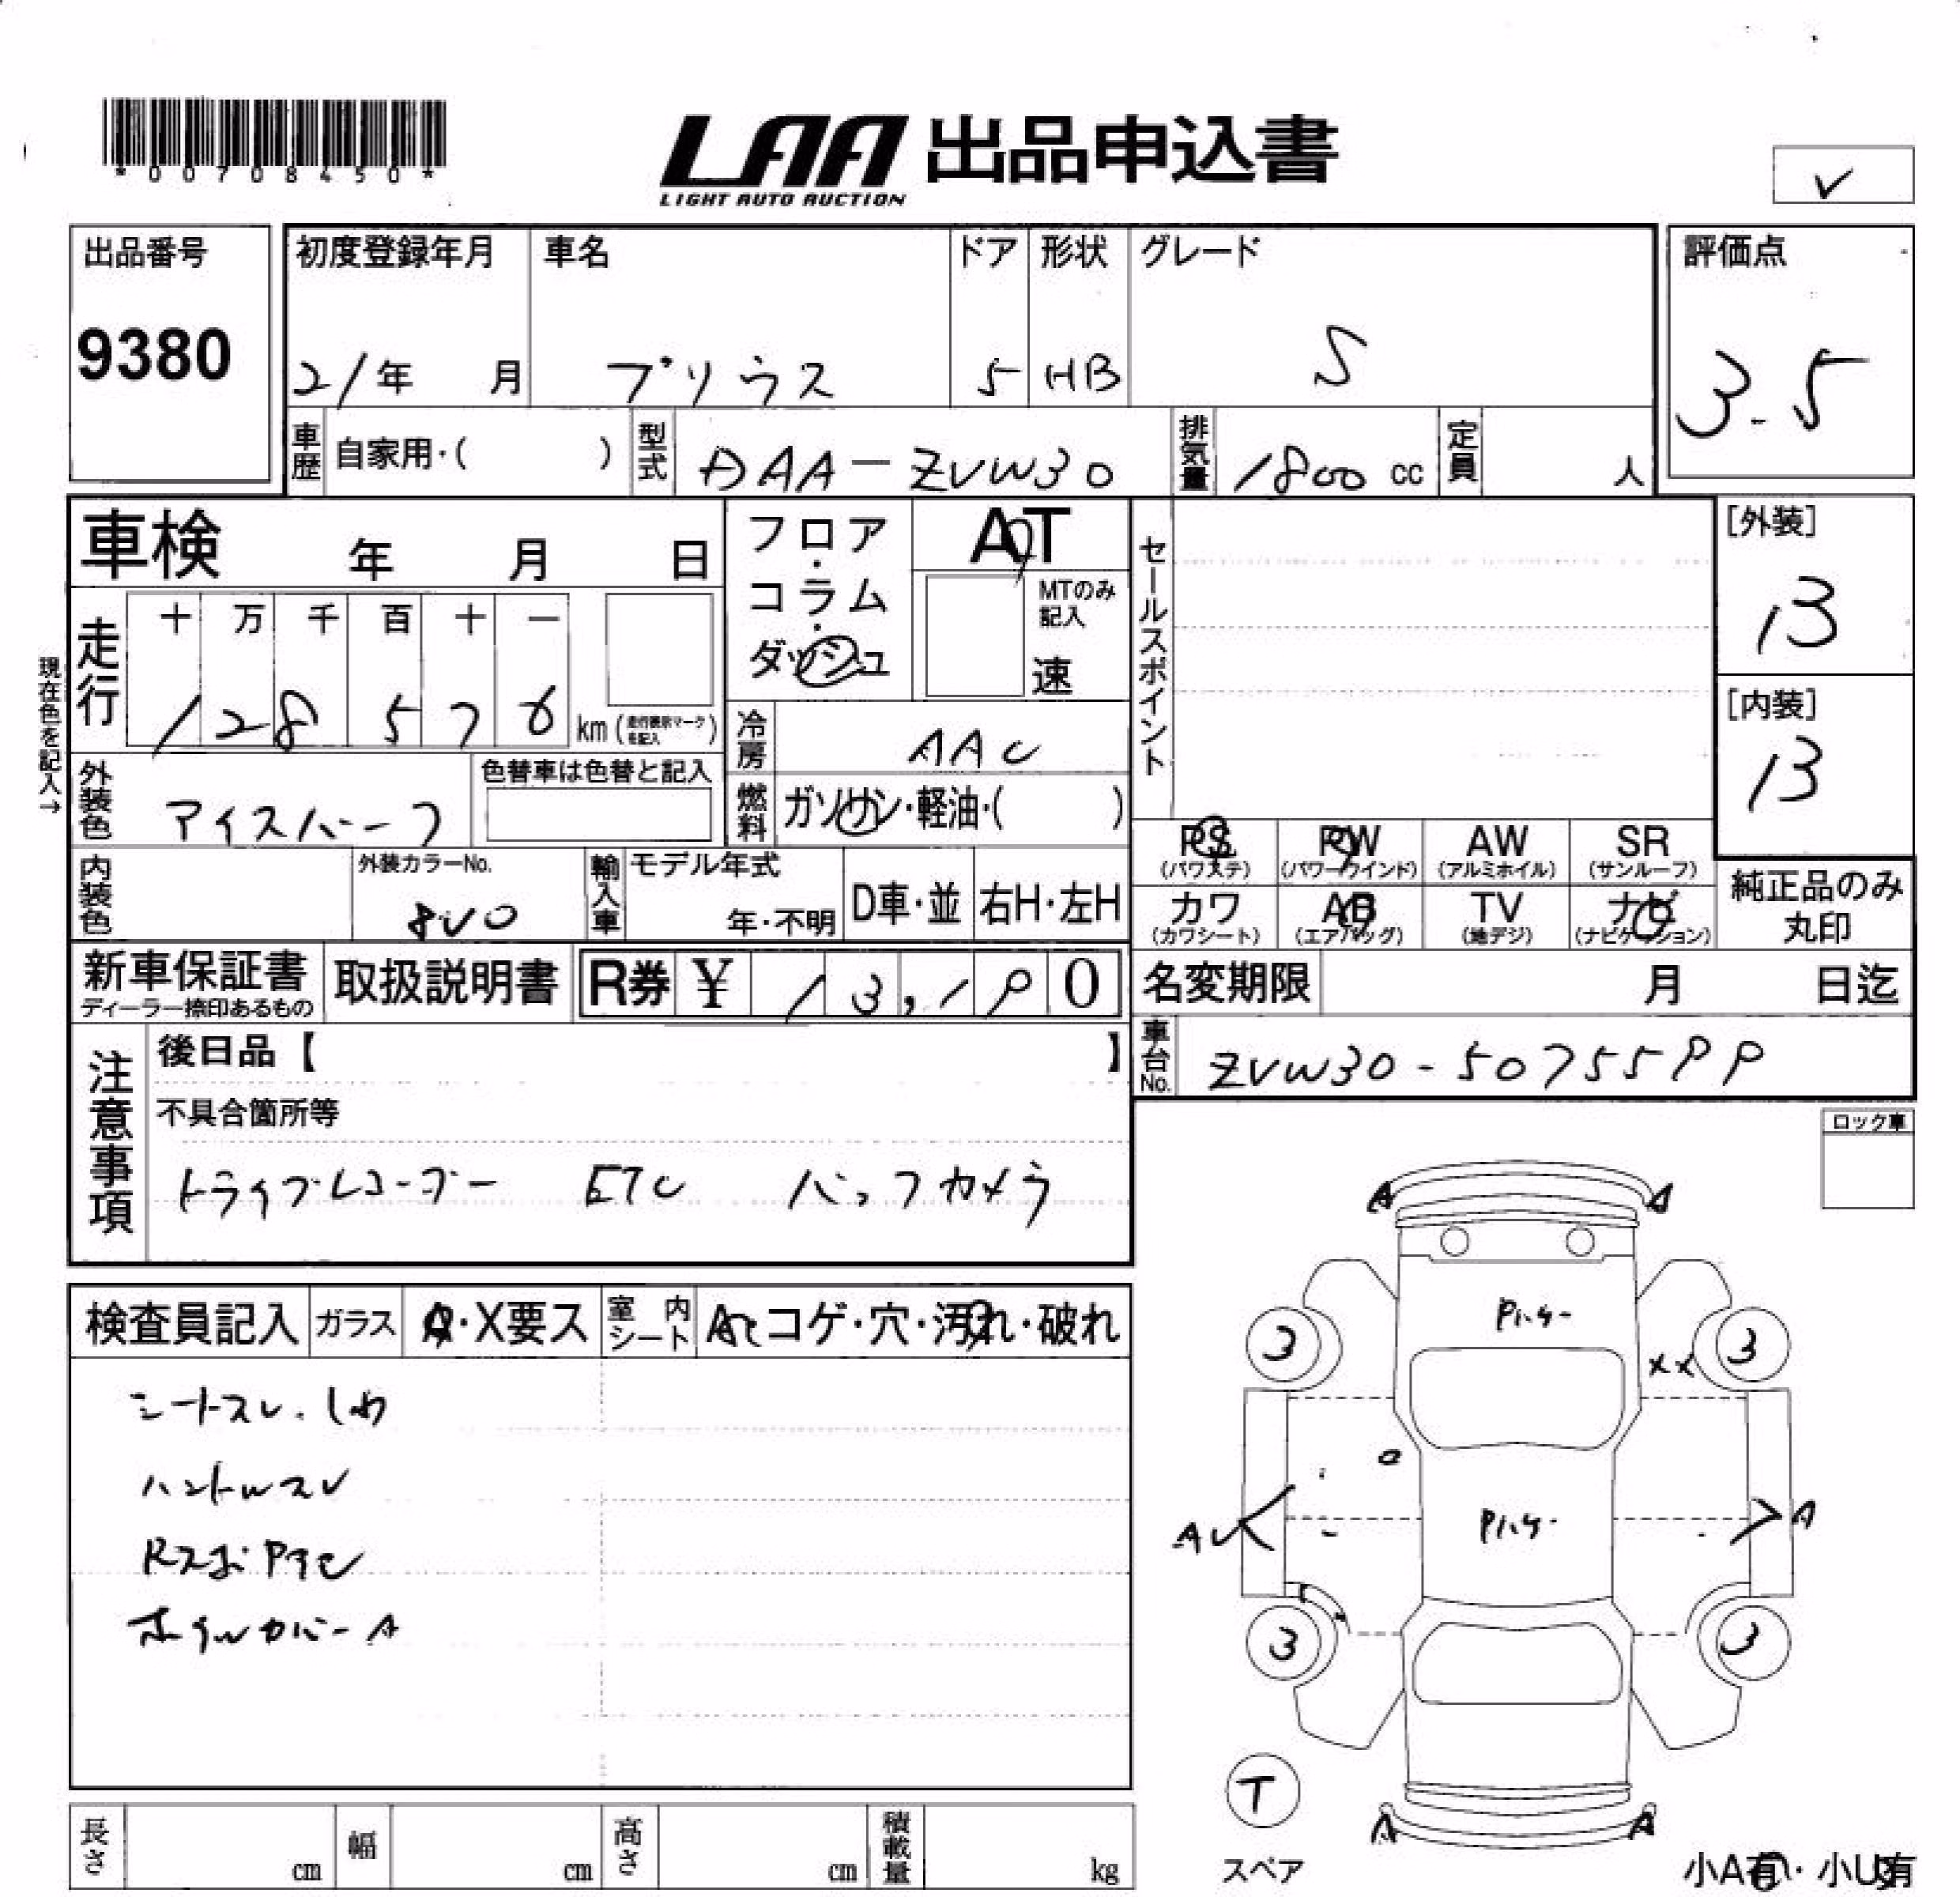 *00708450*
LAA 出品申込書
LIGHT AUTO AUCTION
✓
出品番号
9380
初度登録年月
21年 月
車名
プリウス
ドア
5
形状
HB
グレード
S
評価点
3.5
車歴 自家用・( )
型式 DAA-ZVW30
排気量 1800 cc
定員 人
車検 年 月 日
フロア・コラム・ダッシュ
AT
MTのみ記入
速
セールスポイント
[外装]
B
[内装]
B
現在色を記入→
走行 十 万 千 百 十 一
128576 km (走行表示マークを記入)
冷房 AAC
外装色 アイスバーク
色替車は色替と記入
燃料 ガソリン・軽油・( )
内装色
外装カラーNo.
8V0
輸入車 モデル年式
年・不明
D車・並
右H・左H
PS (パワステ)
PW (パワーウインド)
AW (アルミホイル)
SR (サンルーフ)
カワ (カワシート)
AB (エアバッグ)
TV (地デジ)
ナビ (ナビゲーション)
純正品のみ丸印
新車保証書
ディーラー捺印あるもの
取扱説明書
R券 ¥ 13,190
名変期限 月 日迄
車台No. ZVW30-5075599
注意事項
後日品【 】
不具合箇所等
トライブレコーダー ETC バックカメラ
ロック車
検査員記入
ガラス A・X要ス
室内シート コゲ・穴・汚れ・破れ
シートスレ、しわ
ハンドルスレ
ホイルカバーA
A A
Pハケー
3 3
XX
AU A
Pハケー
3 3
T
スペア
A A
小A有・小U有
長さ cm
幅 cm
高さ cm
積載量 kg